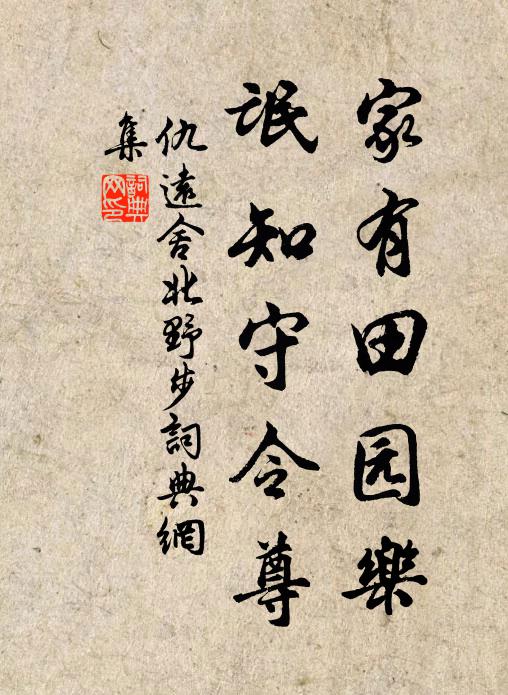 家有田园樂
氓知守令尊
仇遠舍北野步詞典網
集
詞典网印